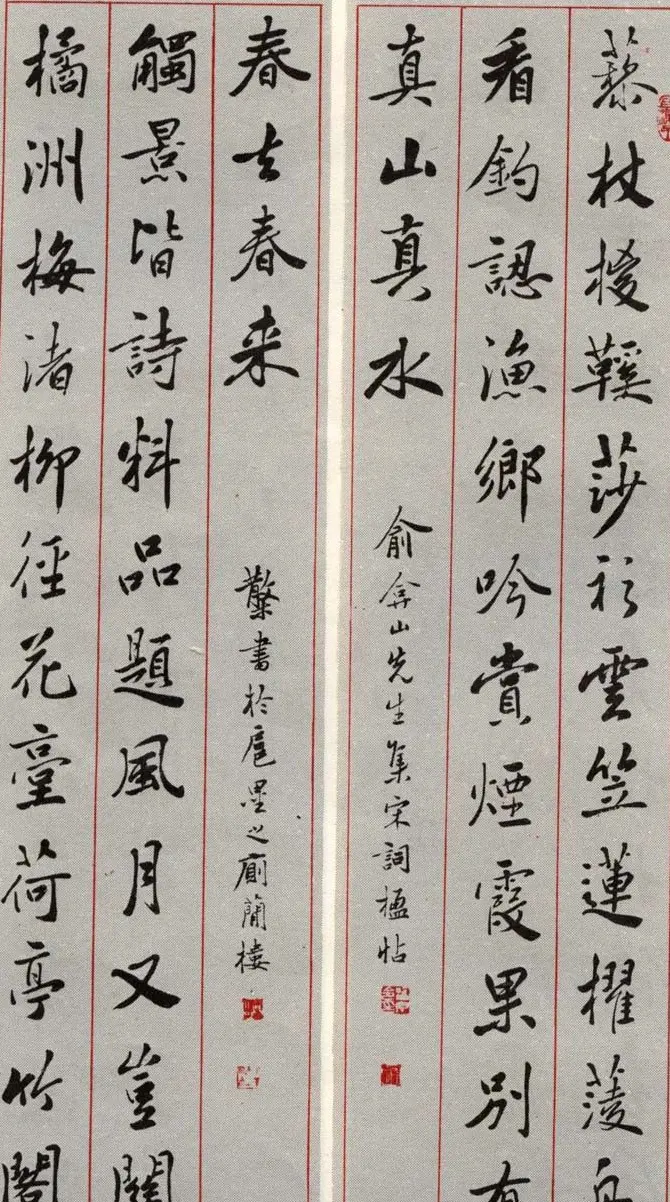 藜杖椶鞵莎衫雲笠蓮櫂菱舟
看釣認漁鄉吟賞煙霞果別有
真山真水
俞弇山先生集宋詞楹帖
橘洲梅渚柳徑花臺荷亭竹閣
觸景皆詩料品題風月又豈關
春去春来
書於之樓